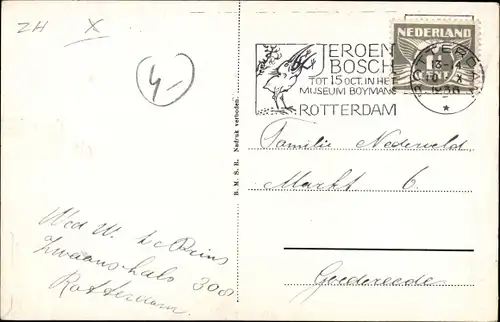 ZH X
4-
JEROEN
BOSCH
TOT 15 OCT. IN HET
MUSEUM BOYMANS
ROTTERDAM
NEDERLAND
13-14
10 X
1936
B. M. S. R. Nadruk verboden.
Familie Nederveld
Markt 6.
Goedereede
Wed W. de Prins
Zwaanshals 308
Rotterdam.